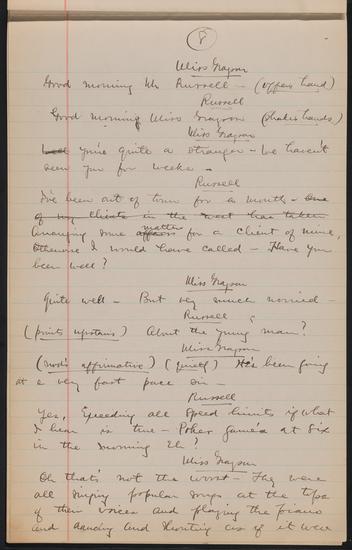 8
Miss Grayson
Good morning Mr Russell — (offers hand)
Russell
Good morning Miss Grayson (shakes hands)
Miss Grayson
Well you're quite a stranger — We haven't
seen you for weeks —
Russell
I've been out of town for a month — One
of my clients in the west has taken
arranging some affairs matter for a client of mine,
otherwise I would have called — Have you
been well?
Miss Grayson
Quite well — But very much worried —
Russell
(points upstairs) About the young man?
Miss Grayson
(nods affirmative) He's been going
at a very fast pace Sir —
Russell
Yes, Speeding all speed limits if what
I hear is true — Poker game's at six
in the morning Eh?
Miss Grayson
Oh that's not the worst — They were
all singing popular songs at the tops
of their voices and playing the piano
and dancing and shouting as if it were